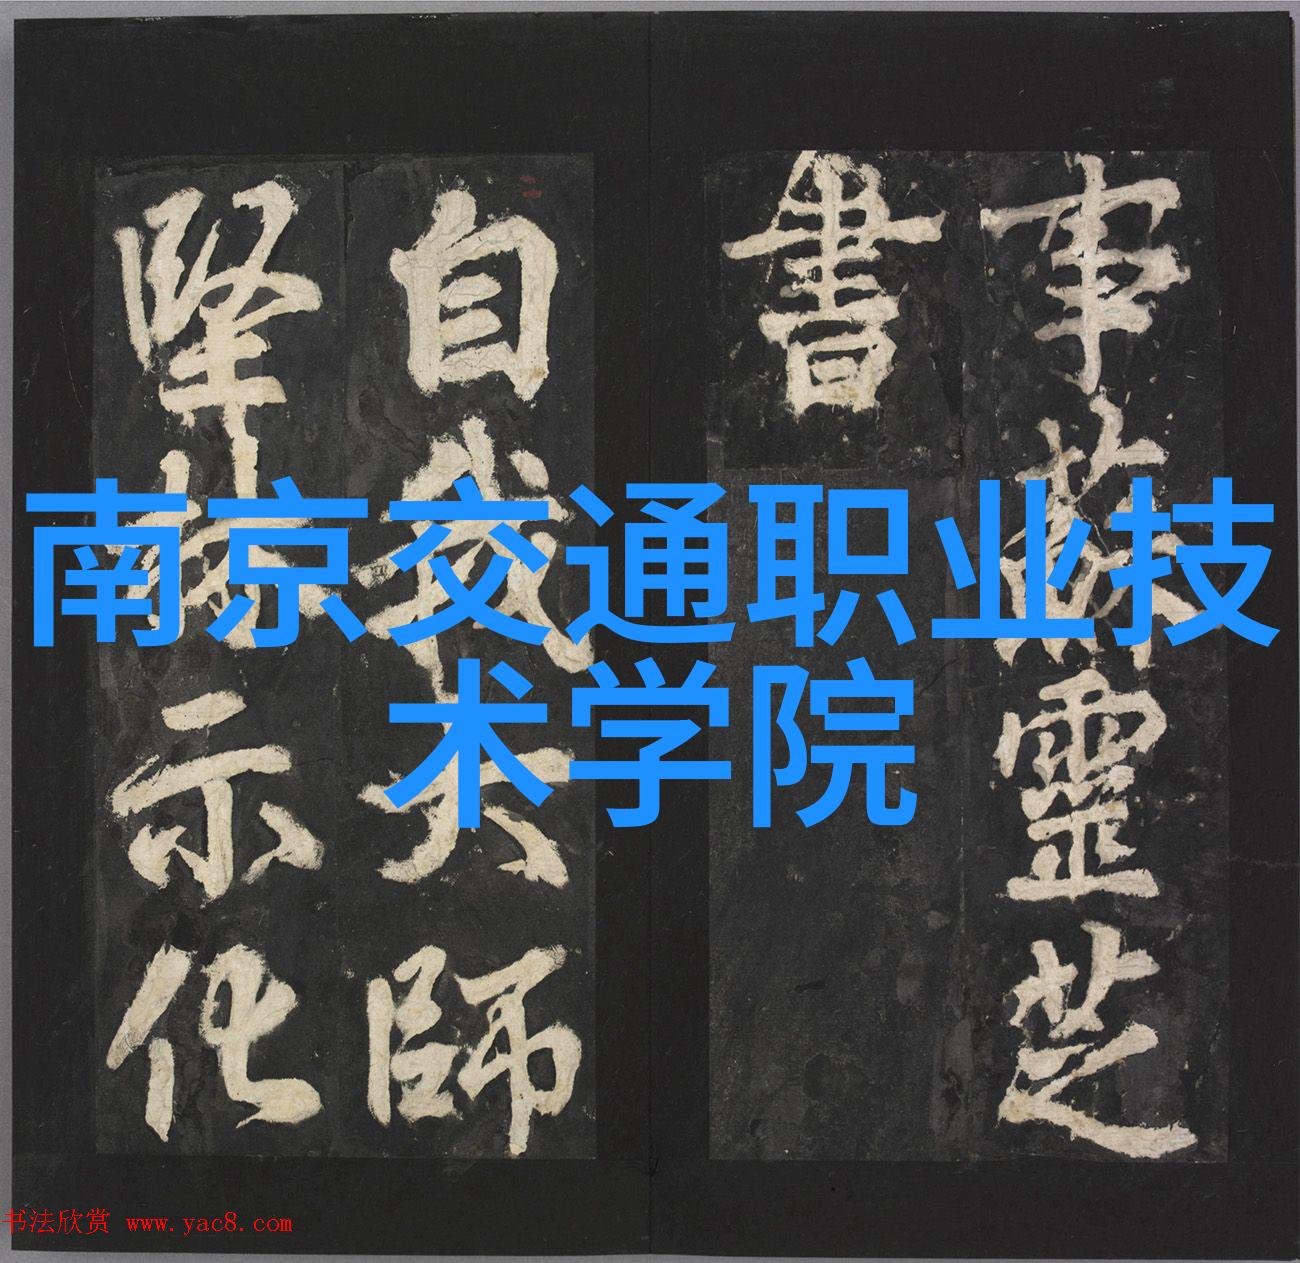 事蘇靈芝
書
自我大師
示化
南京交通职业技
术学院
书法欣赏 www.yac8.com